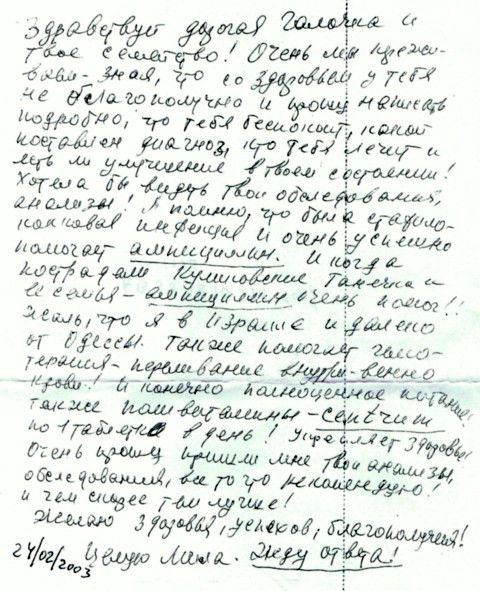 Здравствуй дорогая Галочка и
твое семейство! Очень мы пережи-
ваем - зная, что со здоровьем у тебя
не благополучно и прошу написать
подробно, что тебя беспокоит, какой
поставлен диагноз, кто тебя лечит и
есть ли улучшение в твоем состоянии!
Хотела бы видеть твои обследования,
анализы! Я помню, что была стафило-
кокковая инфекция и очень успешно
помогает ампициллин. И когда
пострадали Куликовские Танечка и
семья - ампициллин очень помог!!
Жаль, что я в Израиле и далеко
от Одессы. Также помогает гемо-
терапия - переливание внутри-венно
крови! И конечно полноценное питание:
также поливитамины -
по 1 таблетке в день! Укрепляет здоровье!
Очень прошу пришли мне твои анализы,
обследования, все то что рекомендую!
и чем скорее тем лучше!
Желаю здоровья, успехов, благополучия!
24/02/2003 Целую Мила. Жду ответа!